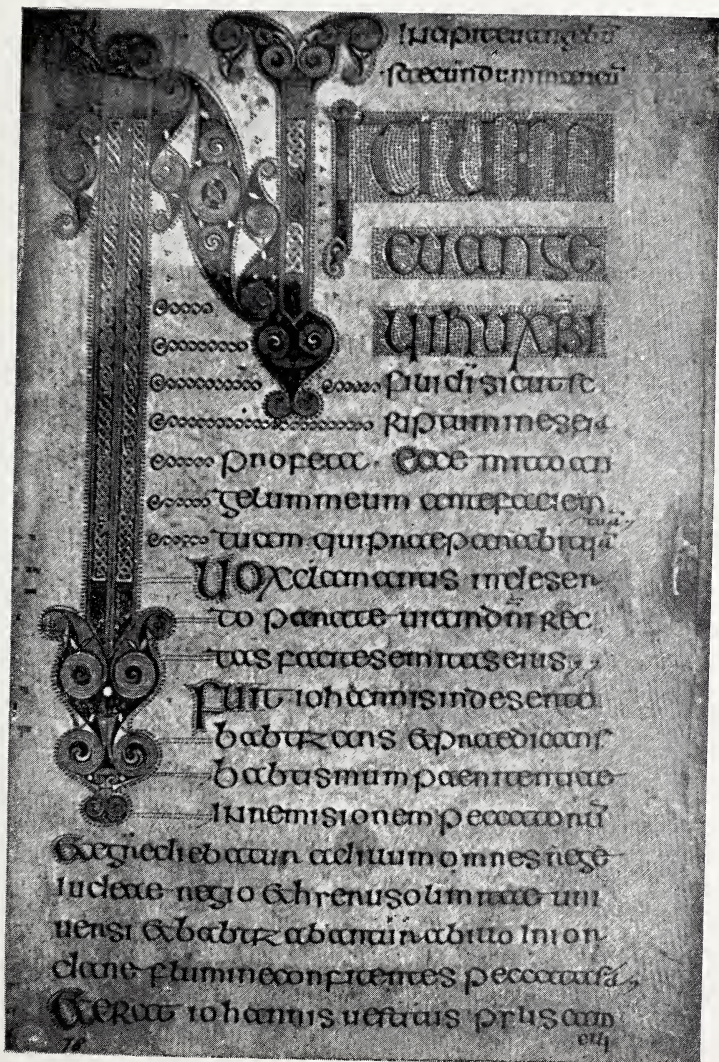 Incipit euangeliū
secundum marcū
INITIUM
EUANGE
LII IHU XPI
filii dī sicut sc
riptum in eseia
profeta. Ecce mitto an
gelum meum ante faciem
tuam qui praeparabit uiā
tuā
Uox clamantis in deser
to parate uiam dnī rec
tas facite semitas eius,,
Fuit iohannis in deserto
babtizans & praedicans
babtismum paenitentiae
in remisionem peccatorū
& egrediebatur ad illum omnes
iudeae regio & hierusolimitae uni
uersi & babtizabantur ab illo in ior
dane flumine confitentes peccata sua
& erat iohannis uestitus pilis cam
eli